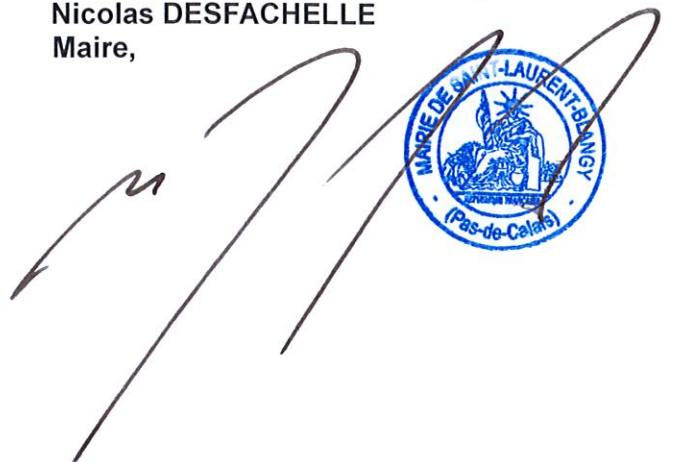 Nicolas DESFACHELLE
Maire,
MAIRIE DE SAINT-LAURENT-BLANGY
REPUBLIQUE FRANÇAISE
(Pas-de-Calais)